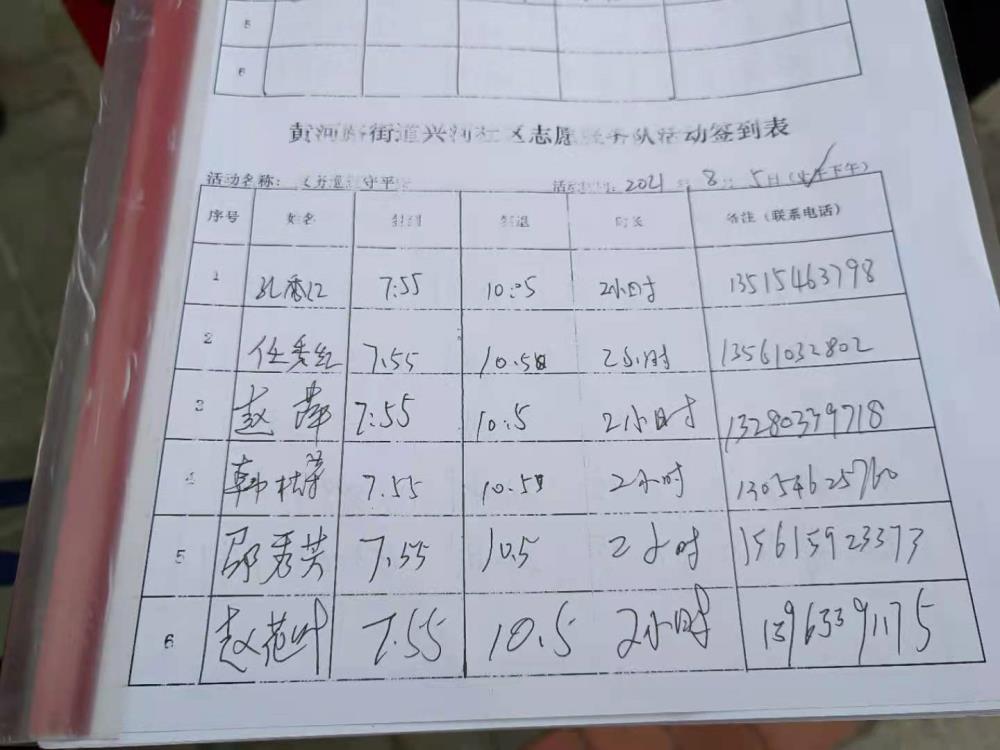 5
6
黄河路街道兴河社区志愿服务队活动签到表
活动名称： 守平安
活动时间：2021年8月5日（上午下午）
序号 姓名 签到 签退 时长 备注（联系电话）
1 孔秀江 7:55 10:05 2小时 13515463798
2 任秀红 7.55 10.5 2小时 13561032802
3 赵 7:55 10:5 2小时 13280339718
4 韩桂 7.55 10.5 2小时 13054625760
5 邵秀芳 7.55 10.5 2小时 15615923373
6 赵花叶 7.55 10.5 2小时 13963391175